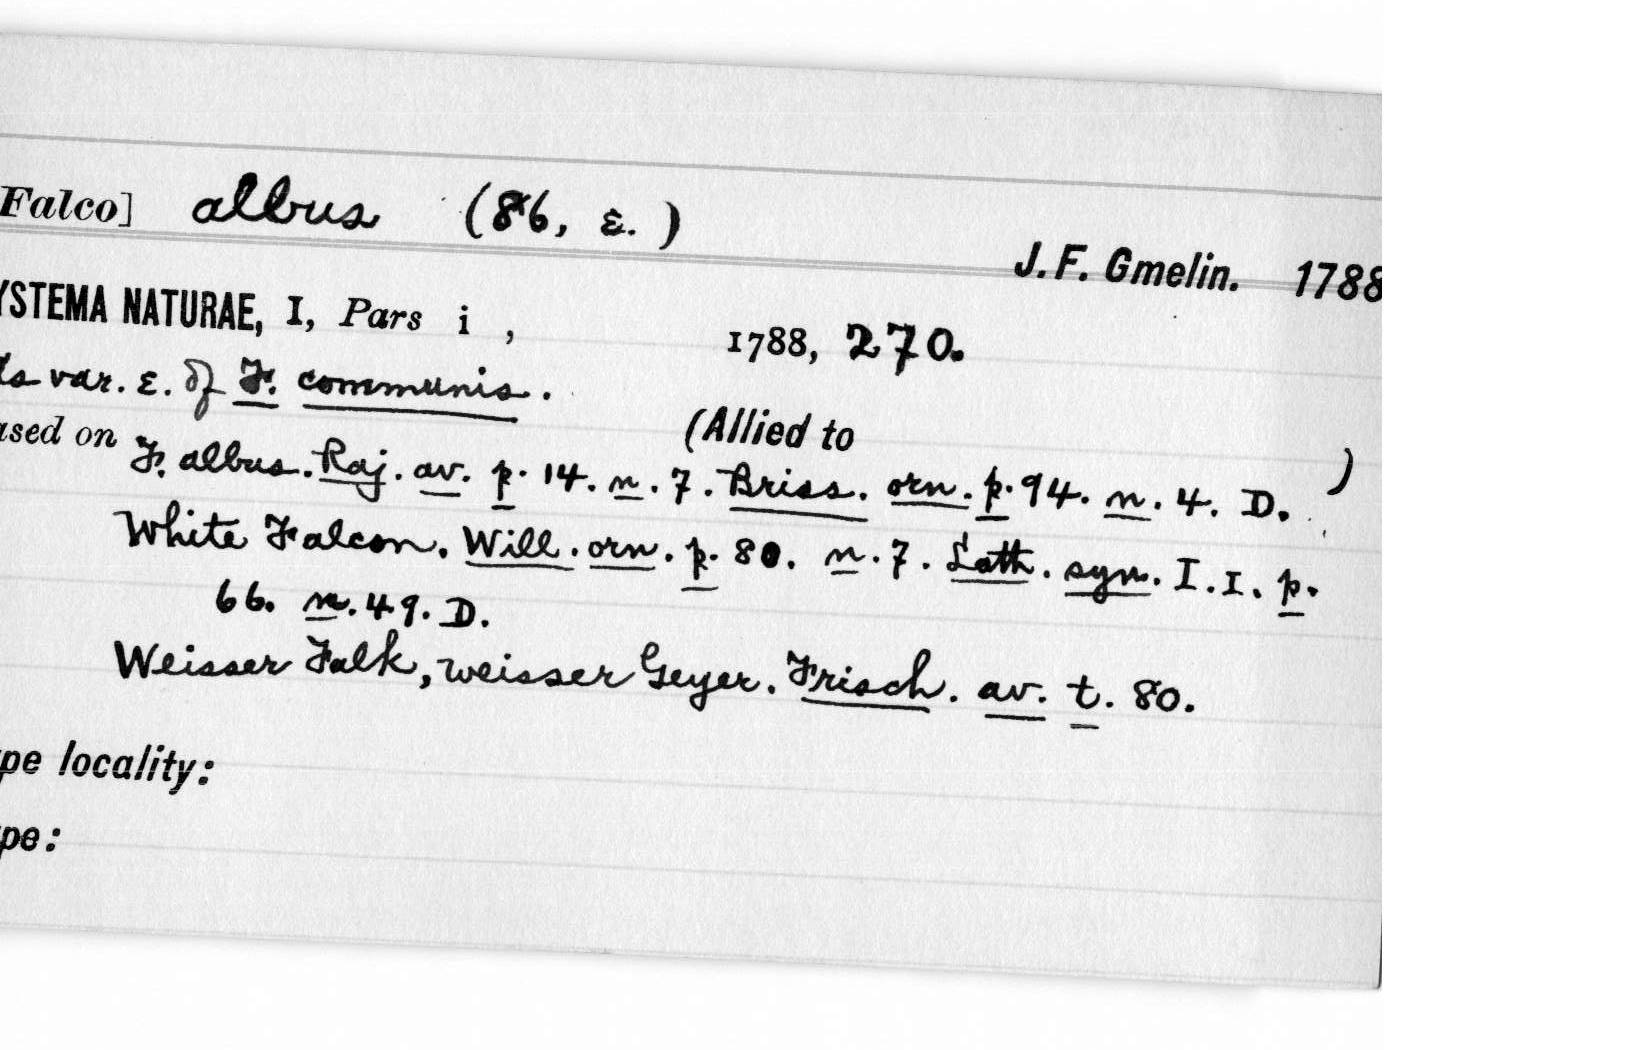 Falco] albus (86, ε.)
J. F. Gmelin. 1788
YSTEMA NATURAE, I, Pars i, 1788, 270.
ts var. ε. of F. communis.
(Allied to )
ased on F. albus. Raj. av. p. 14. n. 7. Briss. orn. p. 94. n. 4. D.
White Falcon. Will. orn. p. 80. n. 7. Lath. syn. I. I. p.
66. n. 49. D.
Weisser Falk, weisser Geyer. Frisch. av. t. 80.
pe locality:
pe: